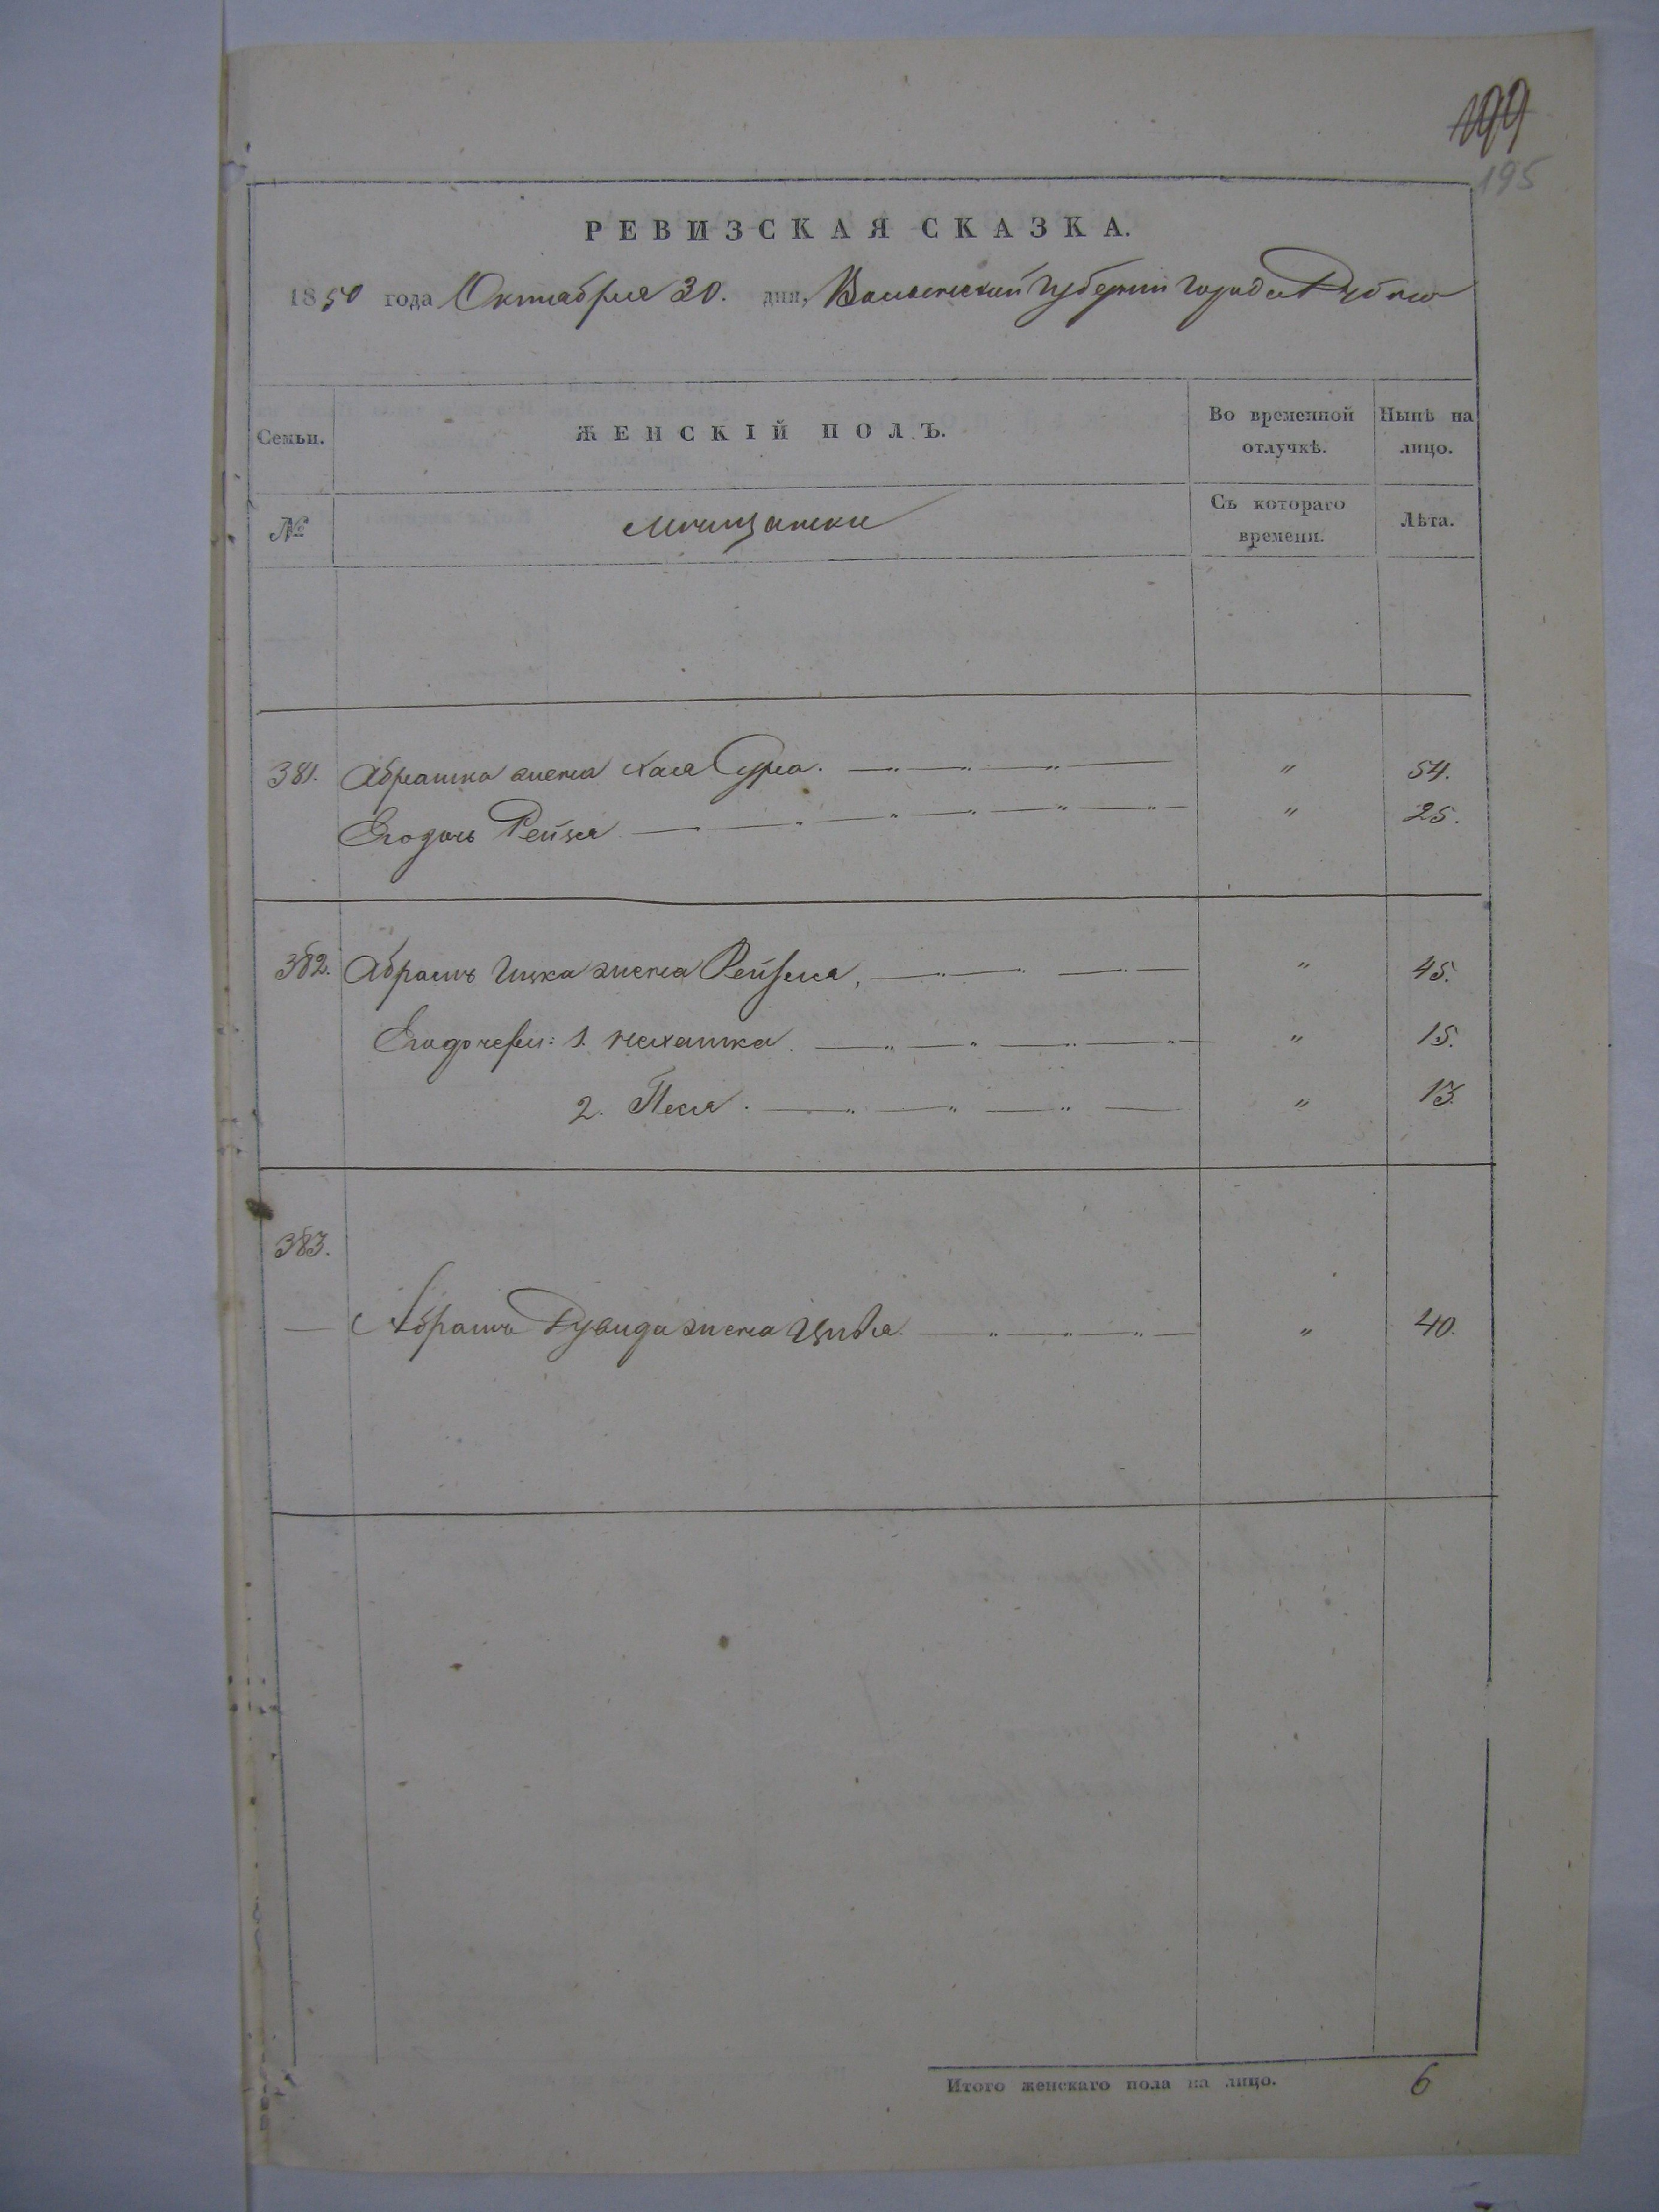 199
195
РЕВИЗСКАЯ СКАЗКА.
1850 года Октября 30. дня, Волынской Губернии Города Дубно
Семьи. ЖЕНСКІЙ ПОЛЪ. Во временной отлучкѣ. Нынѣ на лицо.
№ Мещанки Съ котораго времени. Лѣта.
381. Абрашка жена Хая Сура. " 54.
Его дочь Рейзя " 25.
382. Абрамъ Ицка жена Рейзля, " 45.
Его дочери: 1. Нехамка " 15.
2. Песя. " 13.
383.
Абрамъ Дувида жена Цивья " 40.
Итого женскаго пола на лицо. 6